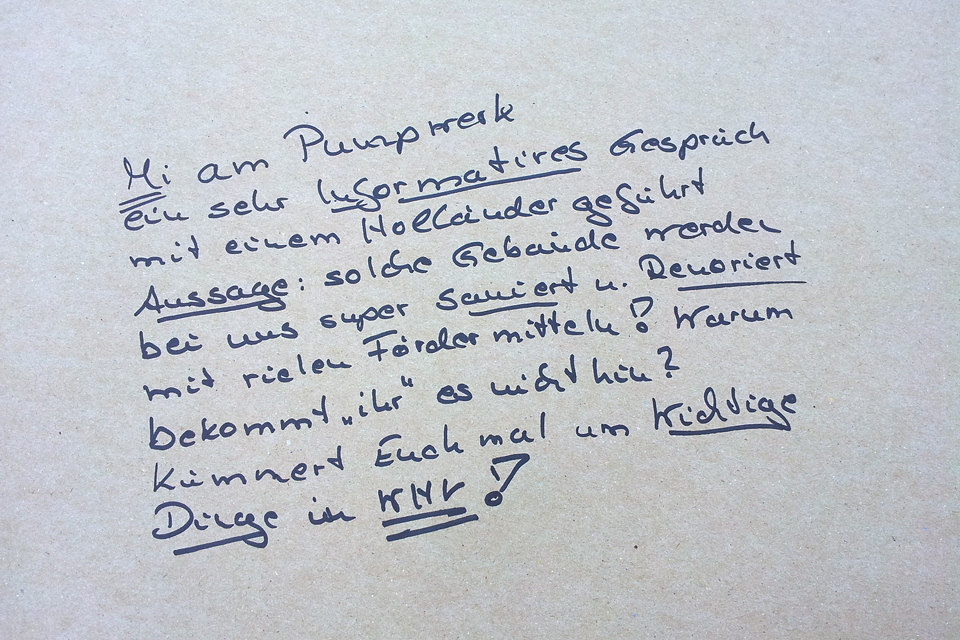 Mi am Pumpwerk
ein sehr Informatives Gespräch
mit einem Holländer geführt
Aussage: solche Gebäude werden
bei uns super Saniert u. Renoviert
mit vielen Fördermitteln! Warum
bekommt „ihr“ es nicht hin?
Kümmert Euch mal um Wichtige
Dinge in WHV!